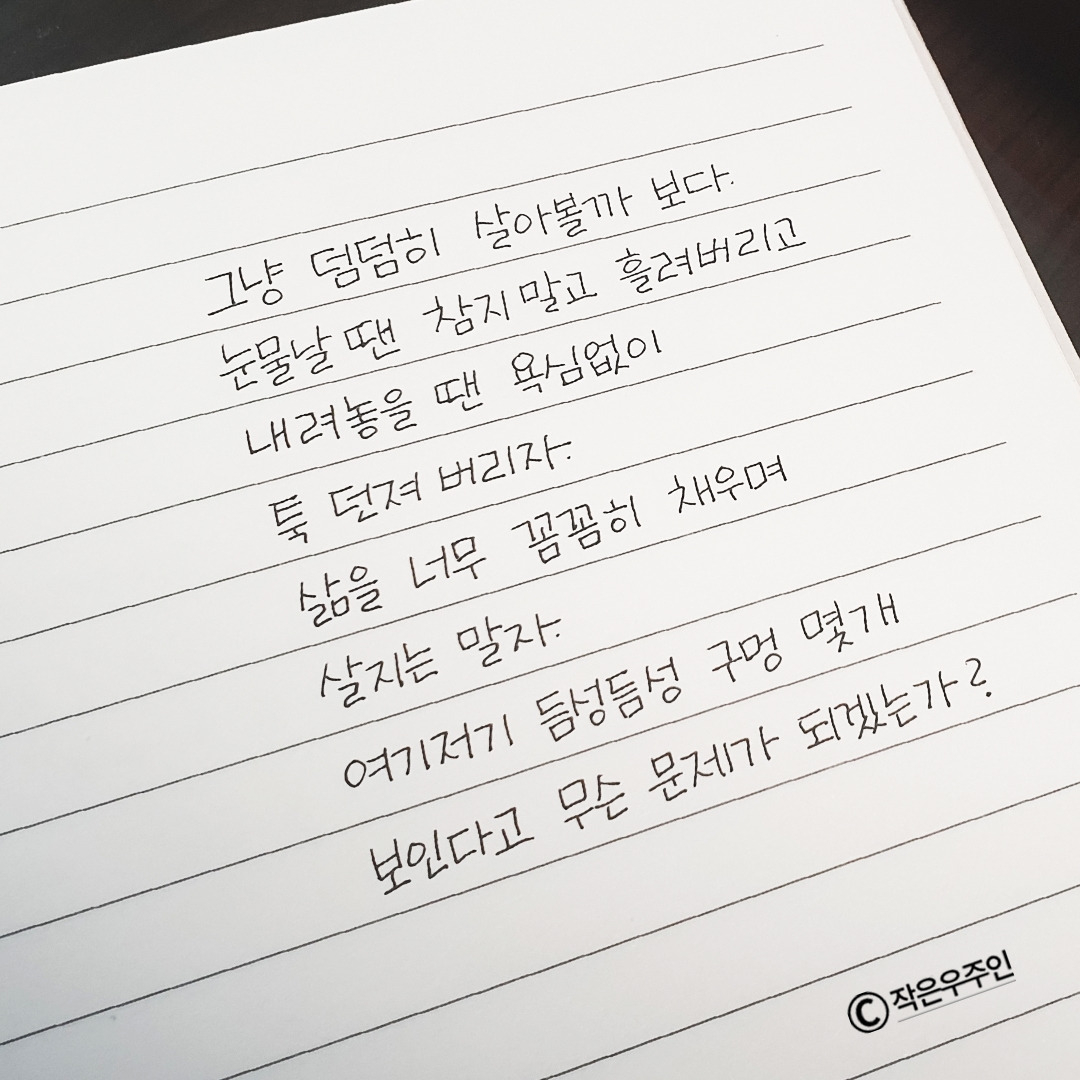 그냥 덤덤히 살아볼까 보다.
눈물날 땐 참지 말고 흘려버리고
내려놓을 땐 욕심없이
툭 던져 버리자.
삶을 너무 꼼꼼히 채우며
살지는 말자.
여기저기 듬성듬성 구멍 몇개
보인다고 무슨 문제가 되겠는가?
©작은우주인